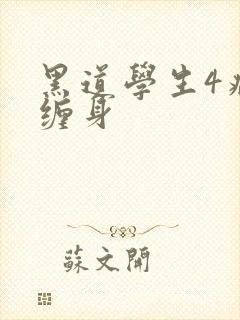 黑道學生4
缠身
蘇文開